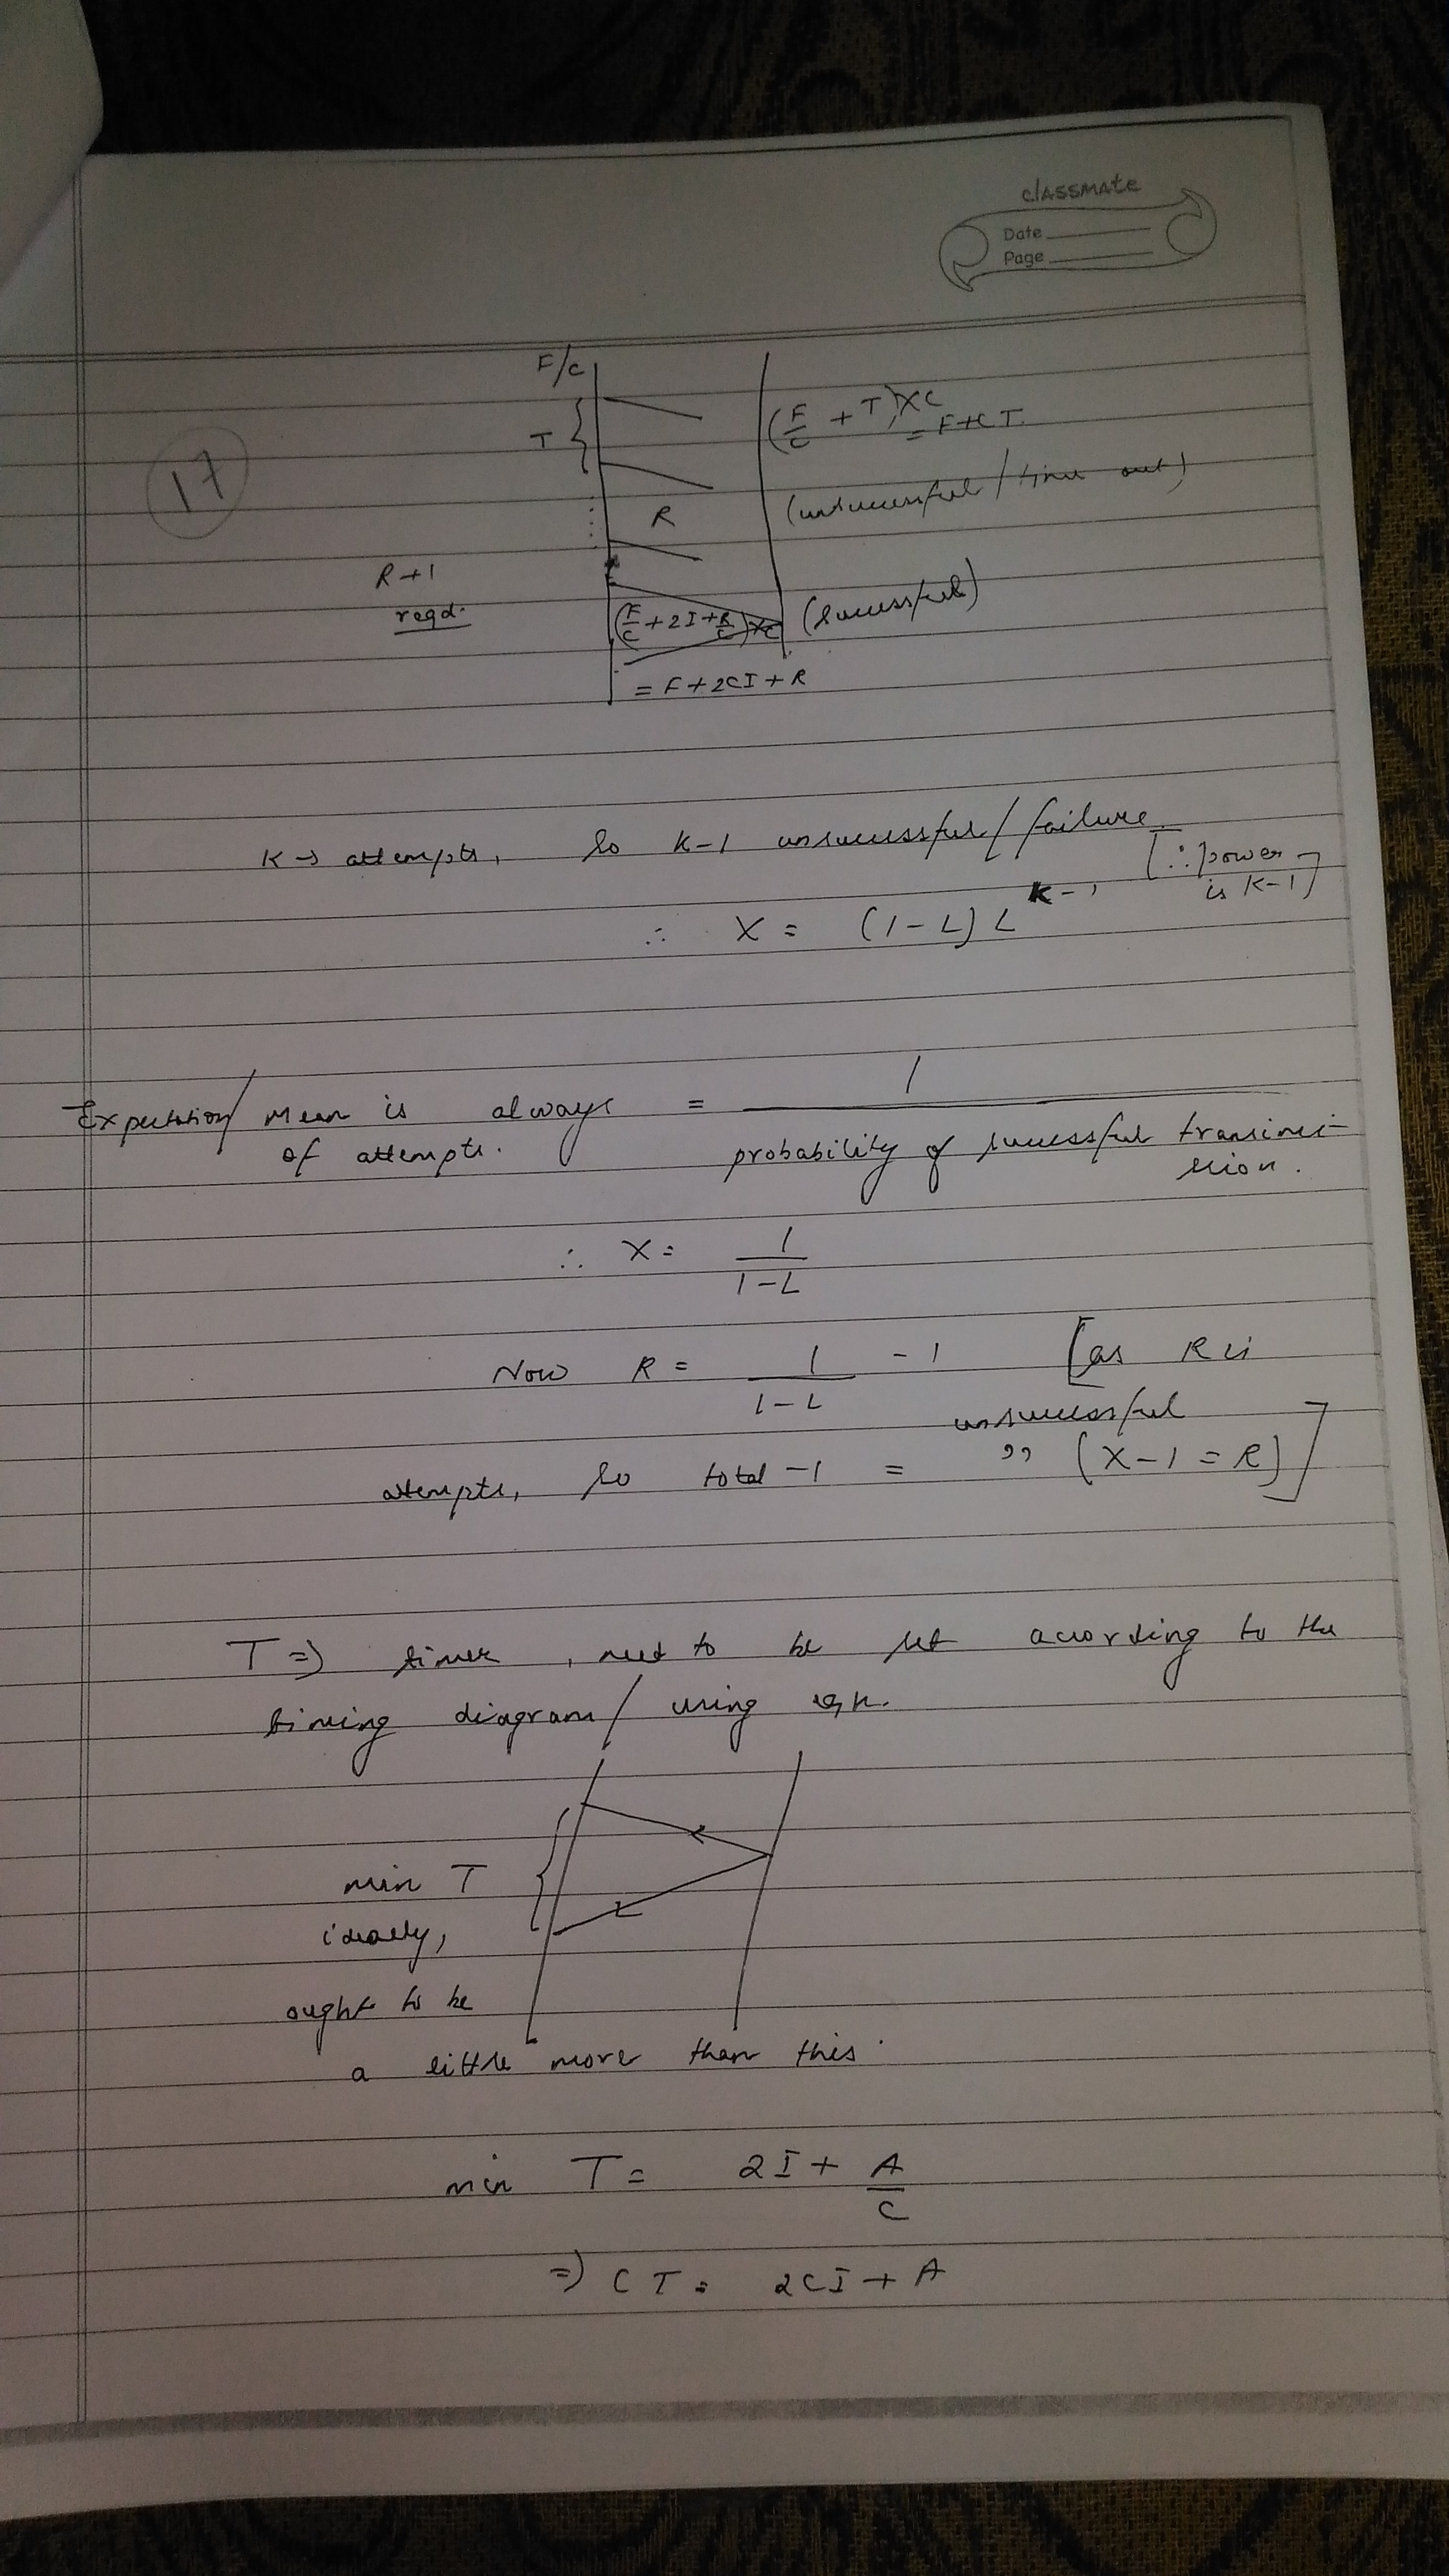 classmate
Date
Page
17
F/C
T
(F/C + T) X C
= F + CT
R
(unsuccessful / time out)
R+1
reqd.
(F/C + 2I + R/C) X C
(successful)
= F + 2CI + R
K → attempts, So K-1 unsuccessful / failure
[∵ power is K-1]
∴ X = (1-L) L^K-1
Expectation / Mean is always = 1
of attempts. probability of successful transmission.
∴ X = 1/(1-L)
Now R = 1/(1-L) - 1 [as R is
unsuccessful
attempts, So total -1 = ,, (X-1 = R)]
T ⇒ timer, need to be set acording to the
timing diagram / using eqn.
min T
ideally,
ought to be
a little more than this.
min T = 2I + A/C
⇒ CT = 2CI + A